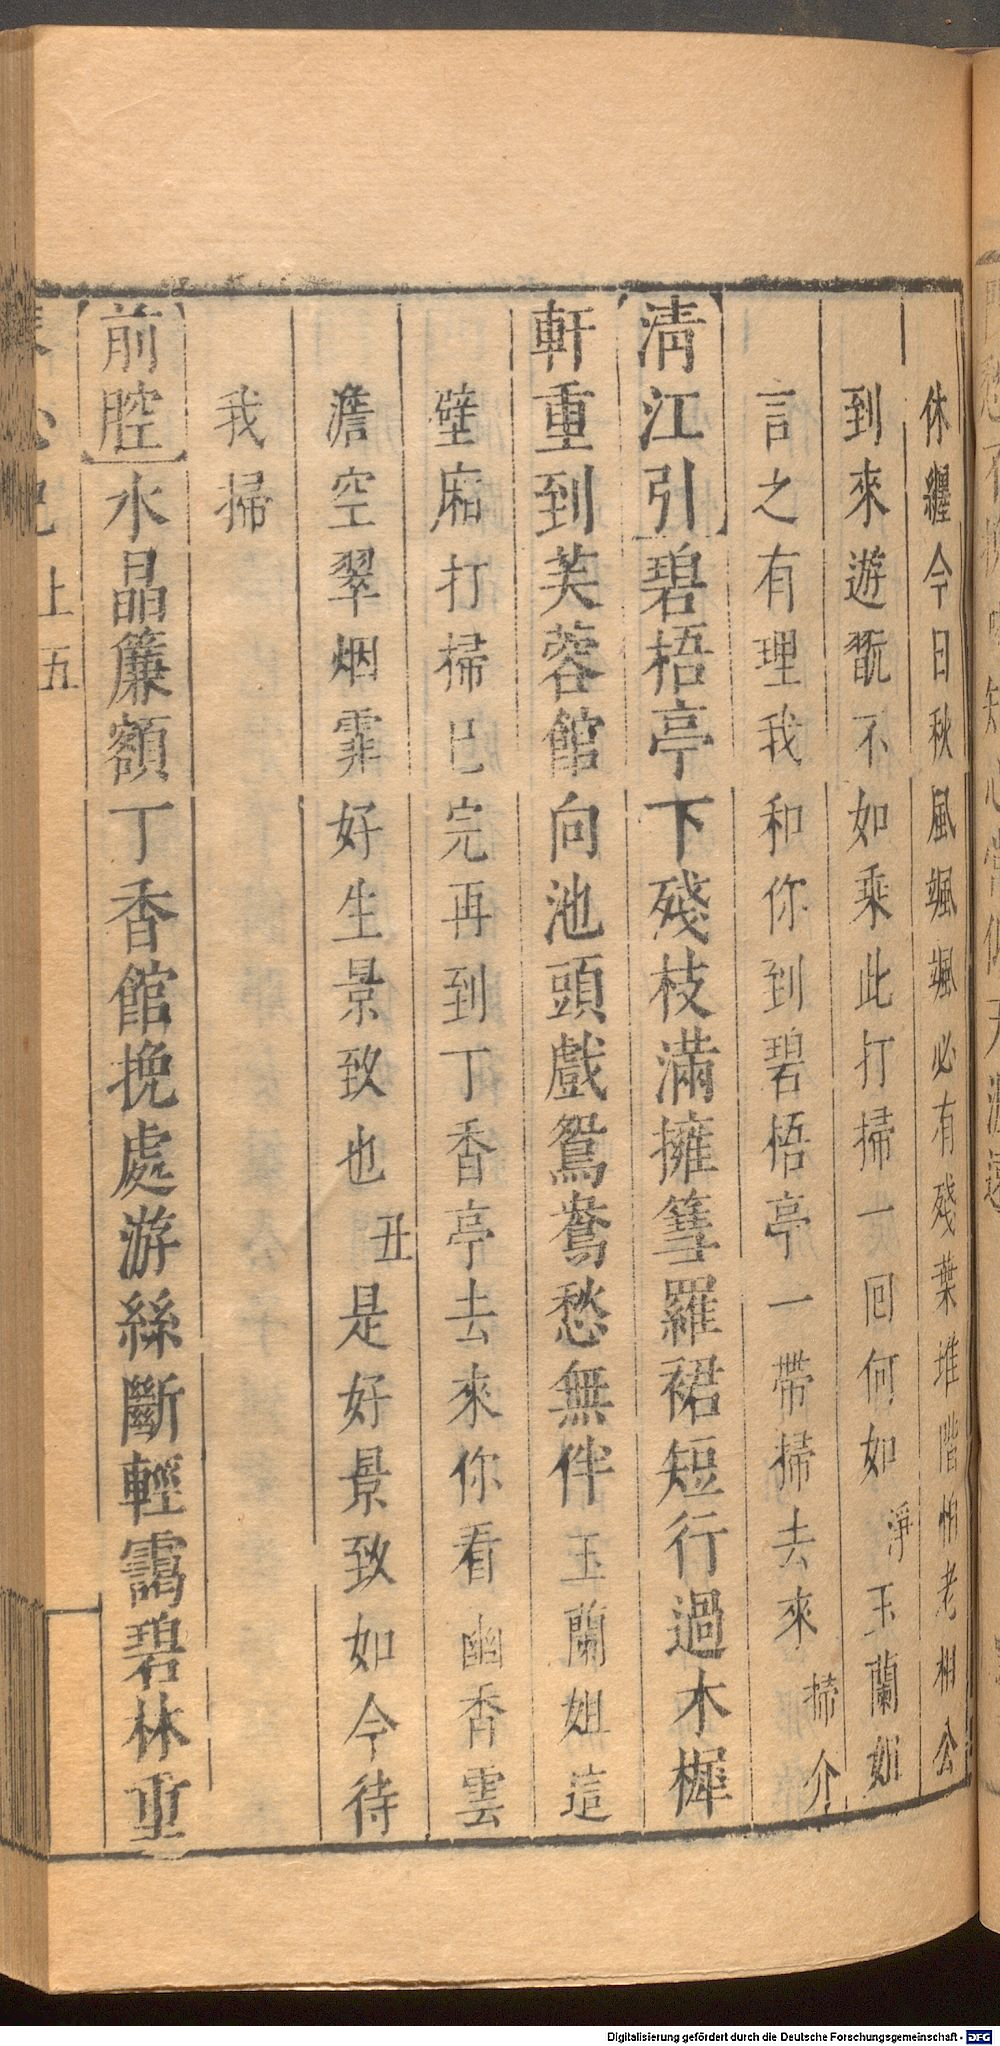 休纏今日秋風颯颯必有殘葉堆階怕老相公
到來遊翫不如乘此打掃一回何如淨玉蘭姐
言之有理我和你到碧梧亭一帶掃去來掃介
清江引碧梧亭下殘枝滿擁篲羅裙短行過木樨
軒重到芙蓉館向池頭戲鴛鴦愁無伴玉蘭姐這
壁廂打掃已完再到丁香亭去來你看幽香雲
澹空翠烟霏好生景致也丑是好景致如今待
我掃
前腔水晶簾額丁香館挽處游絲斷輕靄碧林重
上五
Digitalisierung gefördert durch die Deutsche Forschungsgemeinschaft - DFG